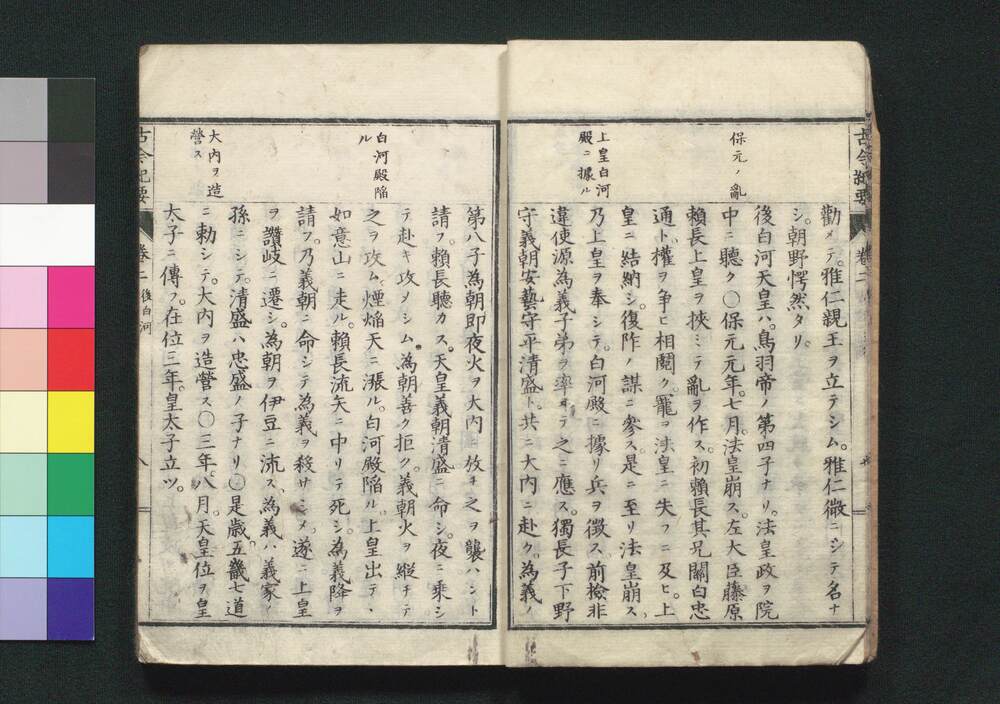 古今紀要
卷二
保元ノ亂
上皇白河
殿ニ據ル
勸メテ。雅仁親王ヲ立テシム。雅仁微ニシテ名ナ
シ。朝野愕然タリ。
後白河天皇ハ。鳥羽帝ノ第四子ナリ。法皇政ヲ院
中ニ聽ク〇保元元年。七月。法皇崩ス。左大臣藤原
賴長上皇ヲ挾ミテ亂ヲ作ス。初賴長其兄關白忠
通ト。權ヲ爭ヒ相鬩ク。寵ヲ法皇ニ失フニ及ヒ。上
皇ニ結納シ。復阼ノ謀ニ參ス。是ニ至リ法皇崩ス。
乃上皇ヲ奉シテ。白河殿ニ據リ兵ヲ徵ス。前檢非
違使源為義子弟ヲ率ヰテ之ニ應ス。獨長子下野
守義朝安藝守平清盛ト。共ニ大内ニ赴ク。為義ノ
白河殿陥
ル
大内ヲ造
營ス
第八子為朝即夜火ヲ大内ニ放チ之ヲ襲ハント
請フ。賴長聽カス。天皇義朝清盛ニ命シ。夜ニ乘シ
テ赴キ攻メシム。為朝善ク拒ク。義朝火ヲ縱チテ
之ヲ攻ム。煙焔天ニ漲ル。白河殿陥ル。上皇出テ、
如意山ニ走ル。賴長流矢ニ中リテ死シ。為義降ヲ
請フ。乃義朝ニ命シテ為義ヲ殺サシメ。遂ニ上皇
ヲ讚岐ニ遷シ。為朝ヲ伊豆ニ流ス。為義ハ義家ノ
孫ニシテ。清盛ハ忠盛ノ子ナリ〇是歲。五畿七道
ニ勅シテ。大内ヲ造營ス〇三年。八月。天皇位ヲ皇
太子ニ傳フ。在位三年。皇太子立ツ。
古今紀要
卷二
後白河
八